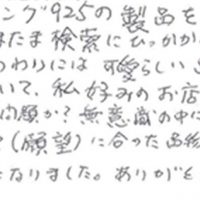 ング925の製品を
またま検索にひっかか
わりには可愛らしい
いて、私好みのお店
問願か?無意識の中に
(願望)に合った品物
なりました。ありがと